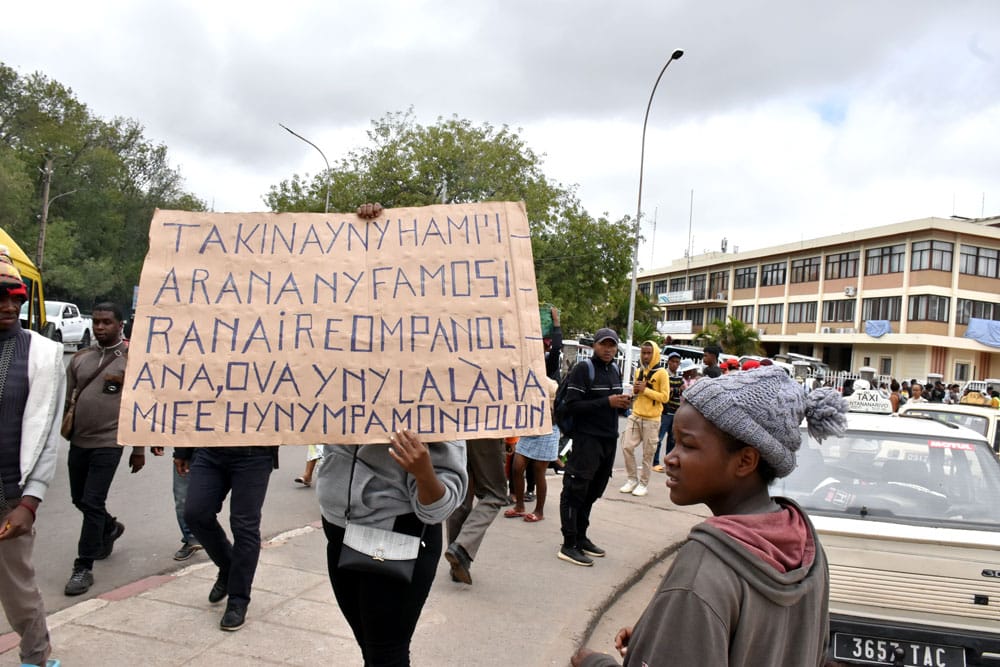 TAKINAYNY HAMPI-
ARANA NY FAMOSI-
RANAIREOMPANOL-
ANA, OVAYNY LALÀNA
MIFEHYNYMPAMONOOLON
TAXI
ANTANANARIVO
3657 TAC